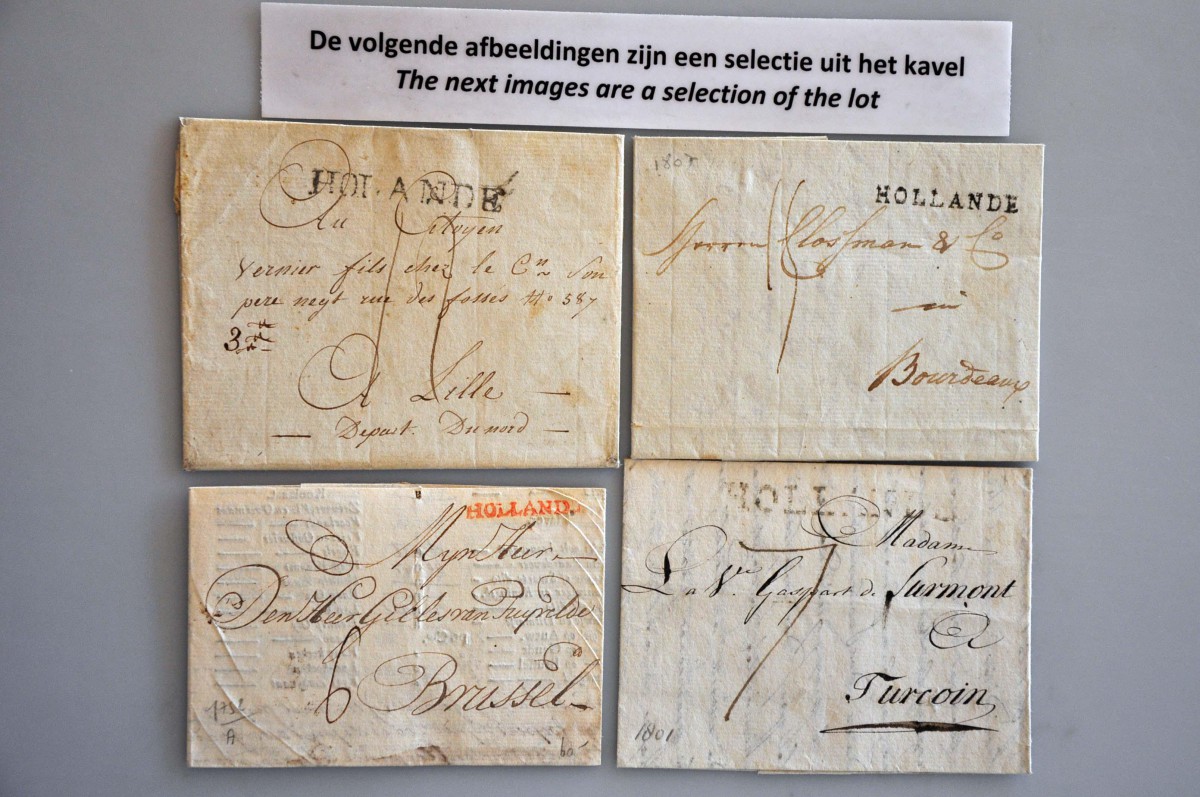 De volgende afbeeldingen zijn een selectie uit het kavel
The next images are a selection of the lot
HOLANDE
Au Citoyen
Vernier fils chez le Cn Son
pere negt rue des fossés No 587
3
A Lille
Depart. Du nord
1805
HOLLANDE
Herren Clossman & Co
in
Bourdeaux
HOLLAND.
Myn Heer
Den Heer Gielles van
6
Brussel
A
HOLLANDE
Madame
La Ve. Gaspart de Surmont
A
Turcoin
1801